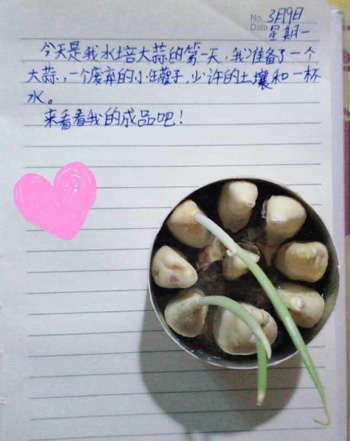 No. 3月9日
Date 星期一
今天是我水培大蒜的第一天,我准备了一个
大蒜,一个废弃的小铁罐子,少许的土壤和一杯
水。
来看看我的成品吧!